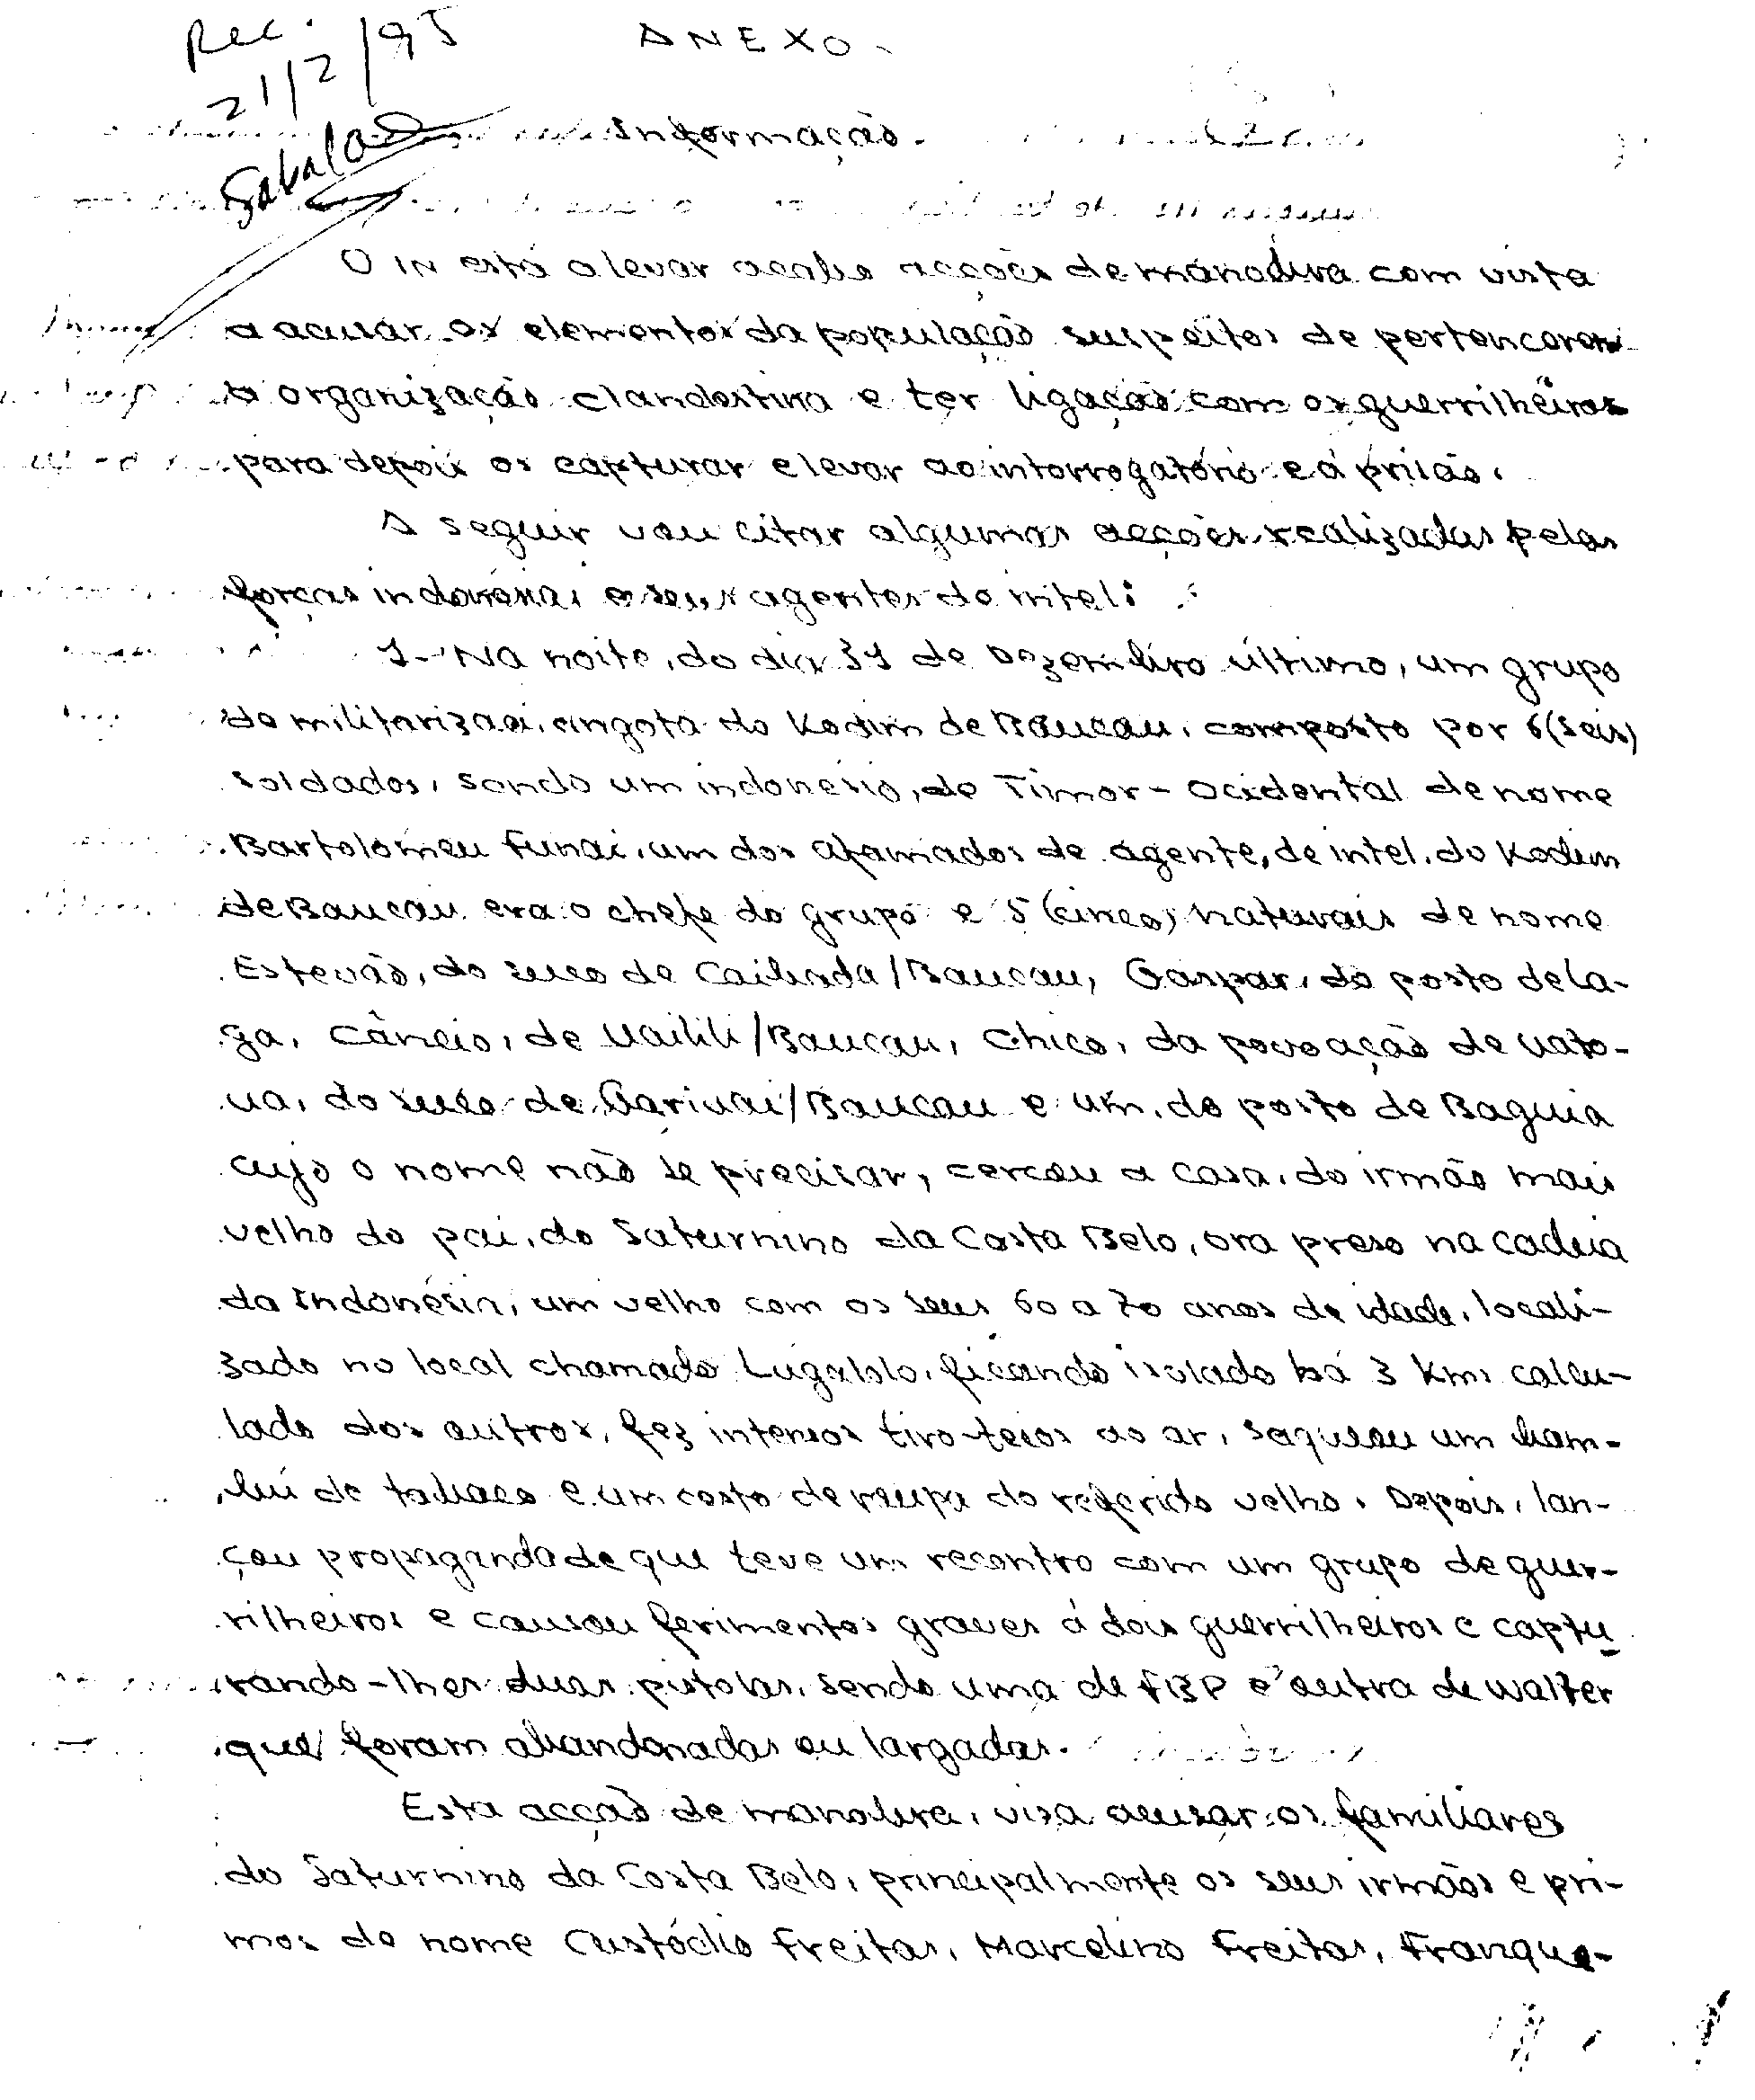 Rec.
21/2/95
ANEXO.
Sabalae
Informação.
O IN está a levar acabo acções de manobra com vista
a acusar os elementos da população suspeitos de pertencerem
à organização clandestina e ter ligação com os guerrilheiros
para depois os capturar e levar ao intorrogatório e á prisão.
A seguir vou citar algumas acções realizadas pelas
forças indonésias e seus agentes do intel:
1- Na noite, do dia 31 de Dezembro último, um grupo
de militarizaai, angota do Kodim de Baucau, composto por 6 (seis)
soldados, sendo um indonésio, de Timor-Ocidental de nome
Bartolomeu Funai, um dos afamados de agente, de intel. do Kodim
de Baucau era o chefe do grupo e 5 (cinco) naturais de nome
Estevão, do suco de Caibada/Baucau, Gaspar, do posto de La-
ga, Câncio, de Uailili/Baucau, Chico, da povoação de Uato-
ua, do suco de Gariuai/Baucau e um, do posto de Baguia
cujo o nome não se precisar, cercou a casa, do irmão mais
velho do pai, do Saturnino da Costa Belo, ora preso na cadeia
da Indonésia, um velho com os seus 60 a 70 anos de idade, locali-
zado no local chamado Lugalolo, ficando isolado há 3 Kms calcu-
lado dos outros, fez intensos tiro-teios ao ar, saqueou um bam-
bú de tabaco e um costo de roupa do referido velho. Depois, lan-
çou propaganda de que teve um recontro com um grupo de guer-
rilheiros e causou ferimentos graves á dois guerrilheiros e captu
rando-lhes duas pistolas, sendo uma de FBP e outra de Walter
que foram abandonadas ou largadas.
Esta acção de manobra, visa acusar os familiares
do Saturnino da Costa Belo, principalmente os seus irmãos e pri-
mos de nome Custódio Freitas, Marcelino Freitas, Franque-